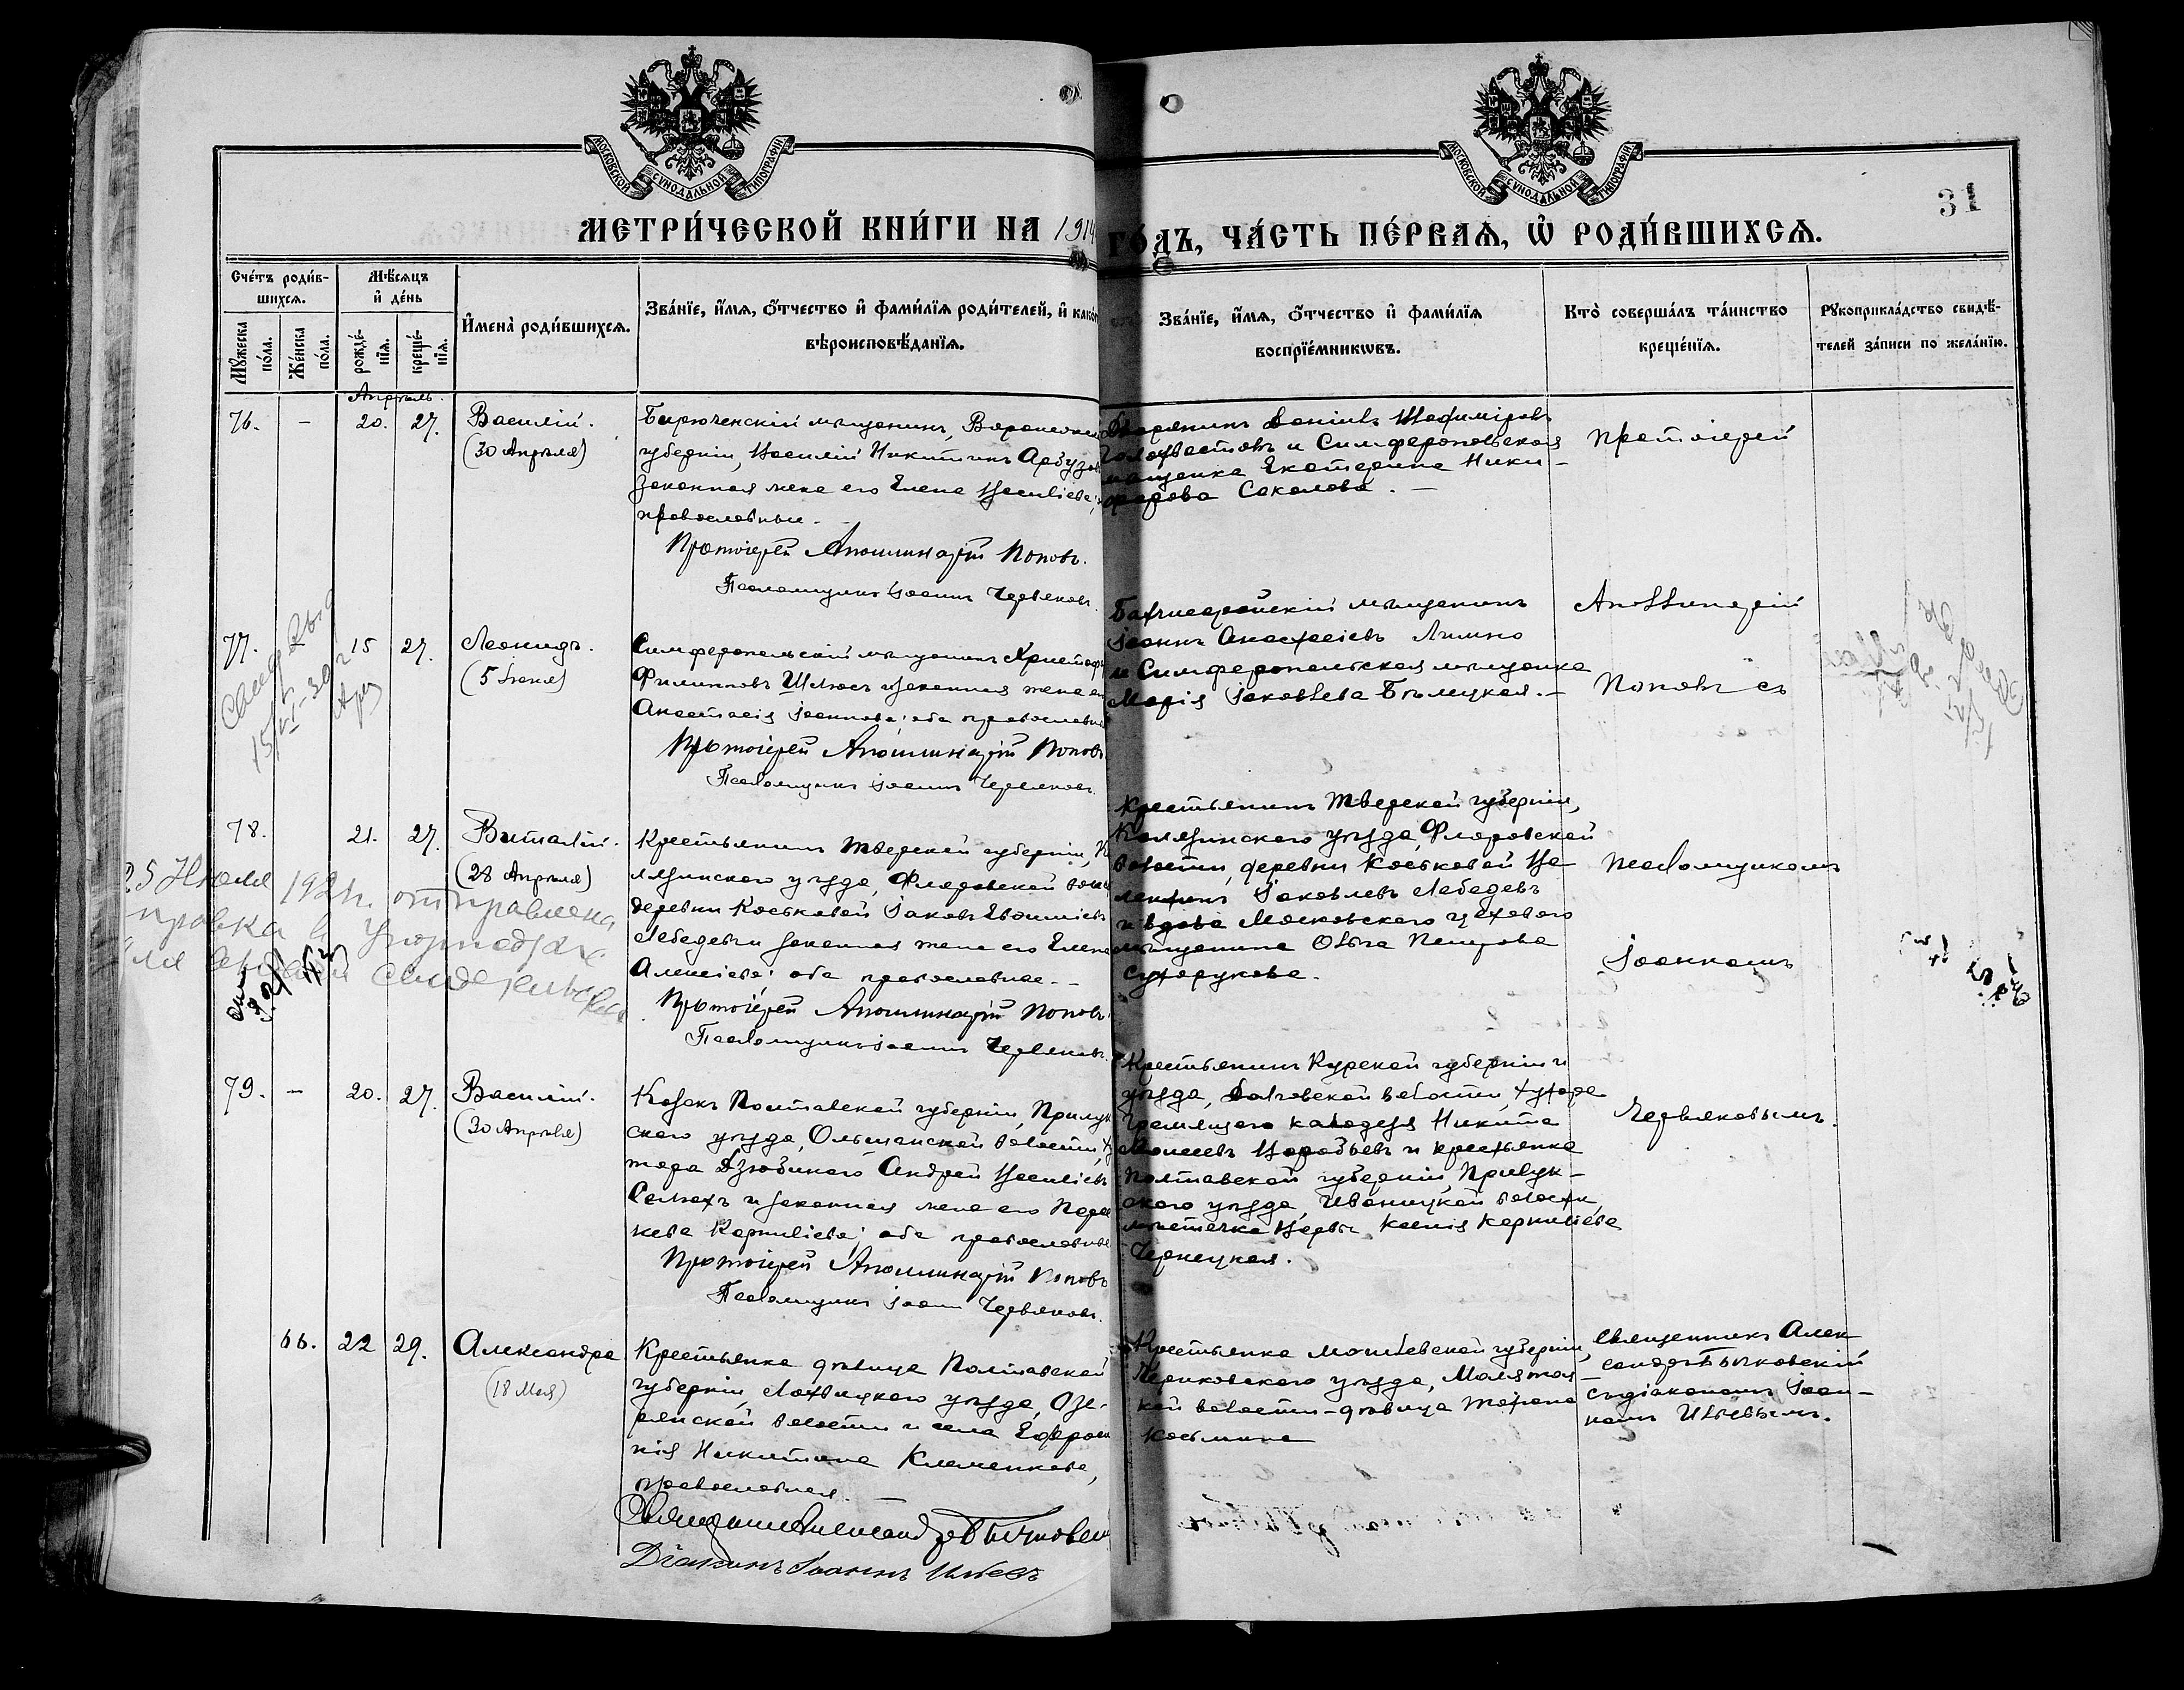 МОСКОВСКОЙ СУНОДАЛЬНОЙ ТИПОГРАФІИ
МОСКОВСКОЙ СУНОДАЛЬНОЙ ТИПОГРАФІИ
31
МЕТРИ́ЧЕСКОЙ КНИ́ГИ НА 1914 ГО́ДЪ, ЧА́СТЬ ПЕ́РВАѦ, Ѡ҆ РОДИ́ВШИХСѦ.
Сче́тъ роди́в-
шихсѧ.
Мꙋ́жеска по́ла.
Же́нска по́ла.
Мѣ́сѧцъ
и҆ де́нь
рожде́-
нїѧ.
креще́-
нїѧ.
И҆мена̀ роди́вшихсѧ.
Зва́нїе, и҆́мѧ, ѻ҆́тчество и҆ фами́лїѧ роди́телей, и҆ како́г
вѣроисповѣ́данїѧ.
Зва́нїе, и҆́мѧ, ѻ҆́тчество и҆ фами́лїѧ
воспрїе́мникѡвъ.
Кто̀ соверша́лъ та́инство
креще́нїѧ.
Рꙋкоприкла́дство свидѣ́-
телей за́писи по жела́нїю.
Апрѣль.
76. - 20. 27. Василій.
(30 Апрѣля)
Бирюченскій мѣщанинъ, Воронежской
губерніи, Василій Никитинъ Арбузовъ
законная жена его Елена Васильева;
православные.
Протоіерей Аполлинарій Поповъ.
Псаломщикъ Іоаннъ Червяковъ.
Дворянинъ Даніилъ
и Симферопольская
мѣщанка Екатерина Ники-
форова Соколова. —
Протоіерей
77. 15 27. Леонидъ.
(5 Іюня)
Симферопольскій мѣщанинъ Христофоръ
Филипповъ Шлюсъ и законная жена его
Анастасія Іоаннова; оба православные
Протоіерей Аполлинарій Поповъ
Псаломщикъ Іоаннъ Червяковъ.
Бахчисарайскій мѣщанинъ
Іоаннъ Анастасіевъ
и Симферопольская мѣщанка
Марія Іаковлева Бѣлецкая. —
Аполлинарій
Поповъ съ
78. 21. 27. Виталій.
(28 Апрѣля)
Крестьянинъ Тверской губерніи, Ка
лязинскаго уѣзда, Фларовской волости
деревни Коськовой Іаковъ
Лебедевъ и законная жена его Елена
Алексіева; оба православные. —
Протоіерей Аполлинарій Поповъ
Псаломщикъ Іоаннъ Червяковъ.
Крестьянинъ Тверской губерніи,
Калязинскаго уѣзда, Фларовской
волости, деревни Коськовой Ва
лентинъ Іаковлевъ Лебедевъ
и вдова Московскаго цехового
мѣщанина Ольга Петрова
Сухорукова.
псаломщикомъ
Іоанномъ
25 Июля 1921 г. отправлена
79. - 20. 27. Василій.
(30 Апрѣля)
Козакъ Полтавской губерніи, Прилук
скаго уѣзда, Ольшанской волости, ху
тора Дзюбинаго Андрей Васильевъ
и законная жена его Парас
кева Корнильева; оба православные
Протоіерей Аполлинарій Поповъ
Псаломщикъ Іоаннъ Червяковъ.
Крестьянинъ Курской губерніи и
уѣзда, волости, хутора
Гремящаго колодезя Никита
Моисеевъ Воробьевъ и крестьянка
Полтавской губерніи, Прилук-
скаго уѣзда, Иваницкой волости,
мѣстечка Ксенія Корнильева
Чернецкая.
Червяковымъ.
66. 22 29. Александра
(18 Мая)
Крестьянка дѣвица Полтавской
губерніи, Лохвицкаго уѣзда, Озе-
рянской волости и села Ефроси
нія Никитина Клименкова,
православная.
Священникъ Александръ Бычковскій
Діаконъ Іоаннъ Ильевъ
Крестьянка Могилевской губерніи,
Чериковскаго уѣзда, Малятич
кой волости - дѣвица Татіана
Косьмина
Священникъ Алек-
сандръ Бычковскій
съ діакономъ Іоан-
номъ Ильевымъ.